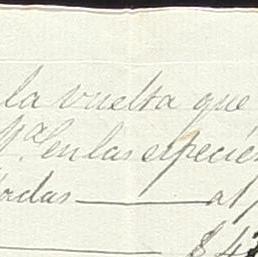 la vuelta que
en las especies
adas ———— al
$ 4